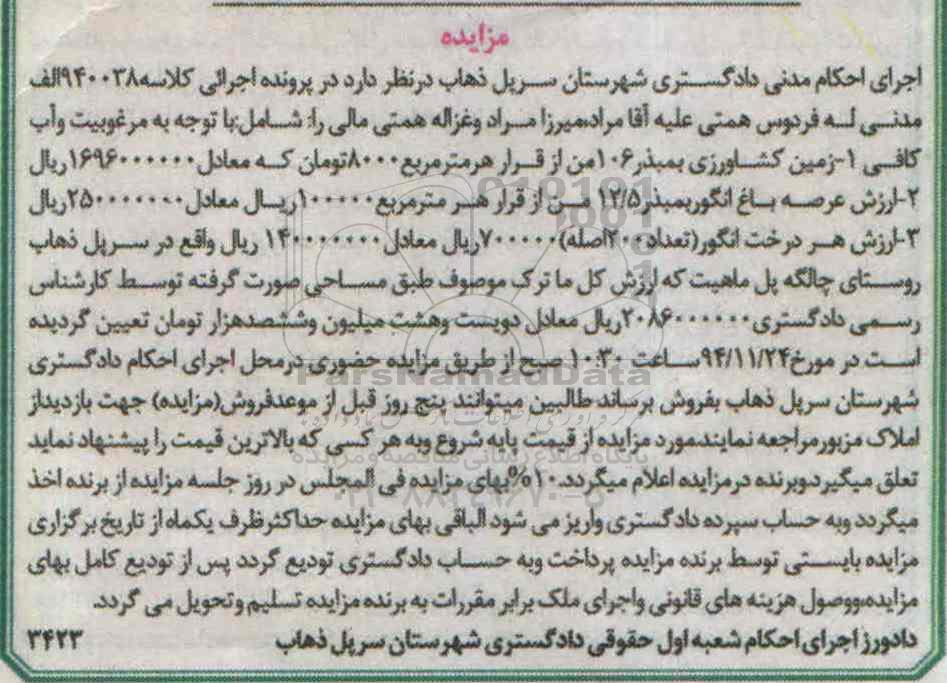 مزایده
اجرای احکام مدنی دادگستری شهرستان سرپل ذهاب درنظر دارد در پرونده اجرائی کلاسه۹۴۰۰۳۸الف
مدنی له فردوس همتی علیه آقا مراد،میرزا مراد وغزاله همتی مالی را؛ شامل:با توجه به مرغوبیت وآب
کافی ۱-زمین کشاورزی بمبذر۱۰۶من از قرار هرمترمربع۸۰۰۰تومان که معادل۱۶۹۶۰۰۰۰۰۰ریال
۲-ارزش عرصه باغ انگوربمبذر۱۲/۵ من از قرار هر مترمربع۱۰۰۰۰۰ریال معادل۲۵۰۰۰۰۰۰۰ریال
۳-ارزش هر درخت انگور(تعداد۲۰۰اصله)۷۰۰۰۰۰ریال معادل۱۴۰۰۰۰۰۰۰ ریال واقع در سرپل ذهاب
روستای چالگه پل ماهیت که ارزش کل ما ترک موصوف طبق مساحی صورت گرفته توسط کارشناس
رسمی دادگستری۲۰۸۶۰۰۰۰۰۰ریال معادل دویست وهشت میلیون وششصدهزار تومان تعیین گردیده
است در مورخ۹۴/۱۱/۲۴ساعت ۱۰:۳۰ صبح از طریق مزایده حضوری درمحل اجرای احکام دادگستری
شهرستان سرپل ذهاب بفروش برساند.طالبین میتوانند پنج روز قبل از موعدفروش(مزایده) جهت بازدیداز
املاک مزبورمراجعه نمایند.مورد مزایده از قیمت پایه شروع وبه هر کسی که بالاترین قیمت را پیشنهاد نماید
تعلق میگیردوبرنده درمزایده اعلام میگردد.۱۰%بهای مزایده فی المجلس در روز جلسه مزایده از برنده اخذ
میگردد وبه حساب سپرده دادگستری واریز می شود الباقی بهای مزایده حداکثرظرف یکماه از تاریخ برگزاری
مزایده بایستی توسط برنده مزایده پرداخت وبه حساب دادگستری تودیع گردد پس از تودیع کامل بهای
مزایده،ووصول هزینه های قانونی واجرای ملک برابر مقررات به برنده مزایده تسلیم وتحویل می گردد.
دادورز اجرای احکام شعبه اول حقوقی دادگستری شهرستان سرپل ذهاب ۳۴۲۳
ParsNamadData
پایگاه اطلاع رسانی مناقصه و مزایده